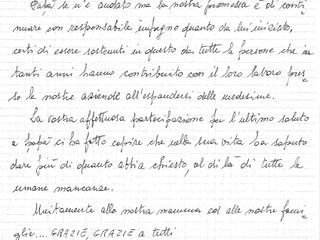 Papà se n'è andato ma la nostra promessa è di conti
nuare con responsabile impegno quanto da lui iniziato,
certi di essere sostenuti in questo da tutte le persone che in
tanti anni hanno contribuito con il loro lavoro pres
so le nostre aziende all'espandersi delle medesime.
La vostra affettuosa partecipazione per l'ultimo saluto
a papà ci ha fatto capire che nella sua vita ha saputo
dare più di quanto abbia chiesto, al di là di tutte le
umane mancanze.
Unitamente alla nostra mamma ed alle nostre fami
glie.... GRAZIE, GRAZIE a tutti